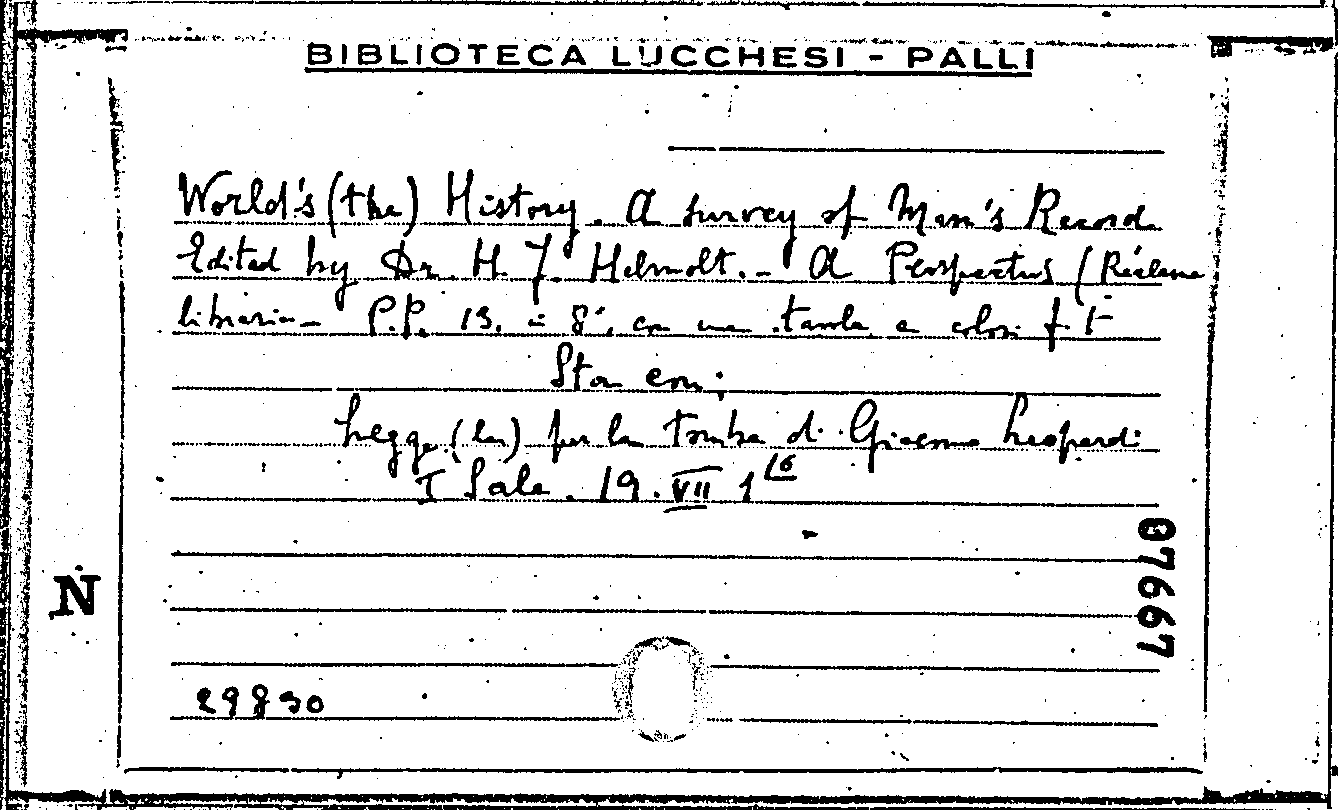 BIBLIOTECA LUCCHESI - PALLI
World's (the) History. A survey of Man's Record
Edited by Dr. H. F. Helmolt. - A Prospectus (Réclame
libraria - P.P. 13. in 8°, con una tavola a colori f t
Sta con:
Legge (la) per la tomba di Giacomo Leopardi
I Sala. 19. VII 1 16
N
07667
29830